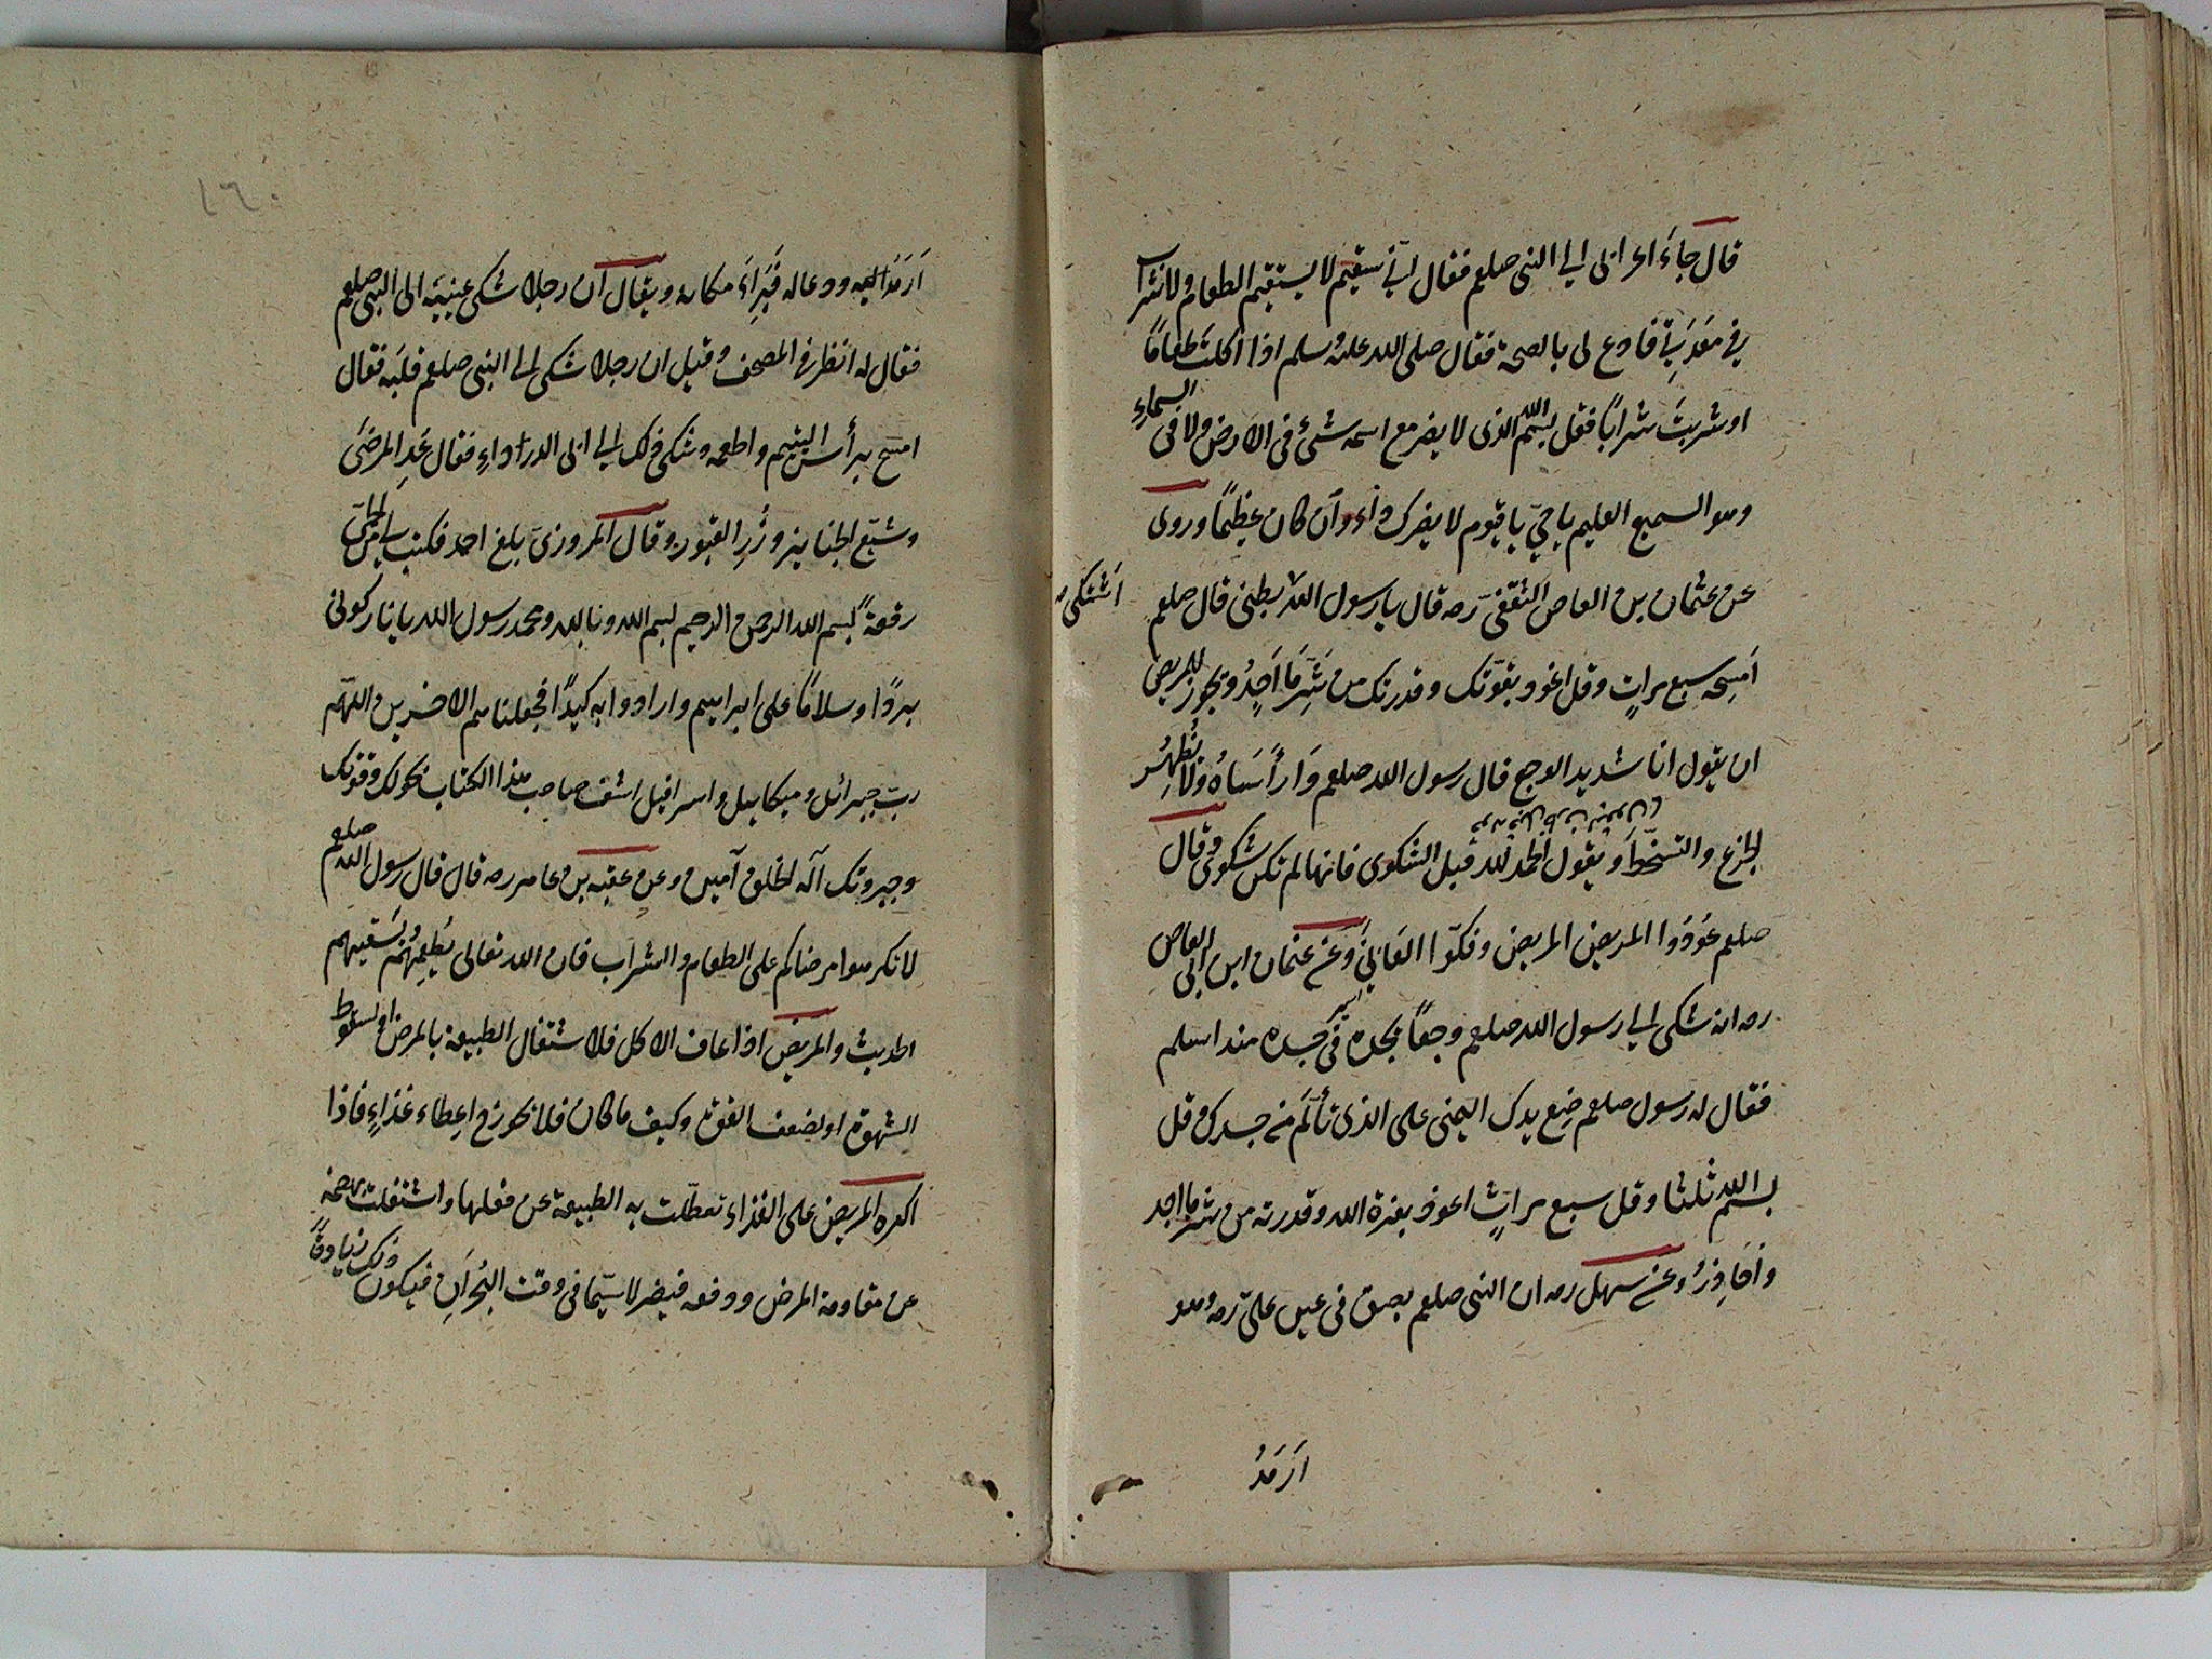 قال جاءَ اعرابى الى النبى صلعم فقال انّي سقيم لا يستقيم الطعام ولا الشراب
في معَدَتِي فادع لى بالصحة فقال صلى الله عليه وسلم اذا اكلت طعامًا
او شربتَ شرابًا فقل بسم الله الذى لا يضر مع اسمه شئ فى الارض ولا فى السماءِ
وهو السميع العليم يا حيّ يا قيوم لا يضرك داءٌ وان كان عظيمًا وروى
عن عثمان بن العاص الثقفى رضه قال يا رسول الله بطنى قال صلعم
اشتكى
اَمسِحه سبع مراتٍ وقل اعوذ بقوتك وقدرتك من شَرِّ مَا اَجِدُ ويجوز للمريض
ان يقول انا شديد الوجع قال رسول الله صلعم وَارأسَاهُ ولا تُظهِرُ
الجزع والتسخّط ويقول الحمد لله قبل الشكوى فانها لم تكن شكوى وقال
صلعم عَوّدُوا المريض المريض وفكّوا العَانِىَ وعن عثمان ابن ابى العاص
رضه انه شكى الى رسول الله صلعم وجعًا يجده فى جسده منذ اسلم
فقال له رسول صلعم ضع يدك اليمنى على الذى تألّم من جسدك وقل
بسم الله ثلثا وقل سبع مراتٍ اعوذ بعزة الله وقدرته من شر ما اجد
واُحَاذِرُ وعن سهل رضه ان النبى صلعم بصق فى عين علىّ رضه وهو
اَرمَدُ
١٦٠
اَرمَدُ العين ودعا له فَبَرِاَءَ مكانه ويقال ان رجلا شكى عينيه الى النبى صلعم
فقال له انظر فى المصحف وقيل ان رجلا شكى الى النبى صلعم قلبَه فقال
امسح برأس اليتيم واطعمه وشكى ذلك الى ابى الدرداءِ فقال عُدِ المرضَى
وشيّع الجنايز وزُرِ القبور وقال المروزىّ بلغ احمد فكتب لى من الحمّى
رقعةً بسم الله الرحمن الرحيم بسم الله وبالله ومحمد رسول الله يا نار كونى
بردًا وسلامًا على ابراهيم وارادوا به كيدًا فجعلناهم الاخسرين اللهمّ
ربّ جبرائل وميكاييل واسرافيل اشف صاحب هذا الكتاب بحولك وقوتك
وجبروتك آله الخلق آمين وعن عقبه بن عامر رضه قال قال رسول الله صلعم
لا تكرهوا مرضاكم على الطعام والشراب فان الله تعالى يُطعِمُهُم ويَسقيهم
الحديث والمريض اذا عاف الاكل فلاشتغال الطبيعة بالمرض او لسقوط
الشهوة او لضعف القوة وكيف ما كان فلا يجوزح اعطاء غذاءٍ فاذا
اكره المريض على الغذاء تعطّلت به الطبيعة عن فعلها واشتغلت بهضمه
عن مقاومة المرض ودفعه فيضر لا سيّما فى وقت البُحرَانِ فيكون ذلك زيادةً